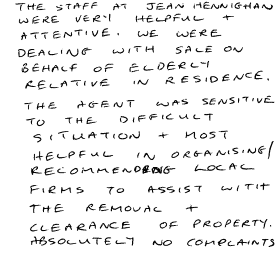 THE STAFF AT JEAN HENNIGHAN
WERE VERY HELPFUL +
ATTENTIVE. WE WERE
DEALING WITH SALE ON
BEHALF OF ELDERLY
RELATIVE IN RESIDENCE.
THE AGENT WAS SENSITIVE
TO THE DIFFICULT
SITUATION + MOST
HELPFUL IN ORGANISING/
RECOMMENDING LOCAL
FIRMS TO ASSIST WITH
THE REMOVAL +
CLEARANCE OF PROPERTY.
ABSOLUTELY NO COMPLAINTS